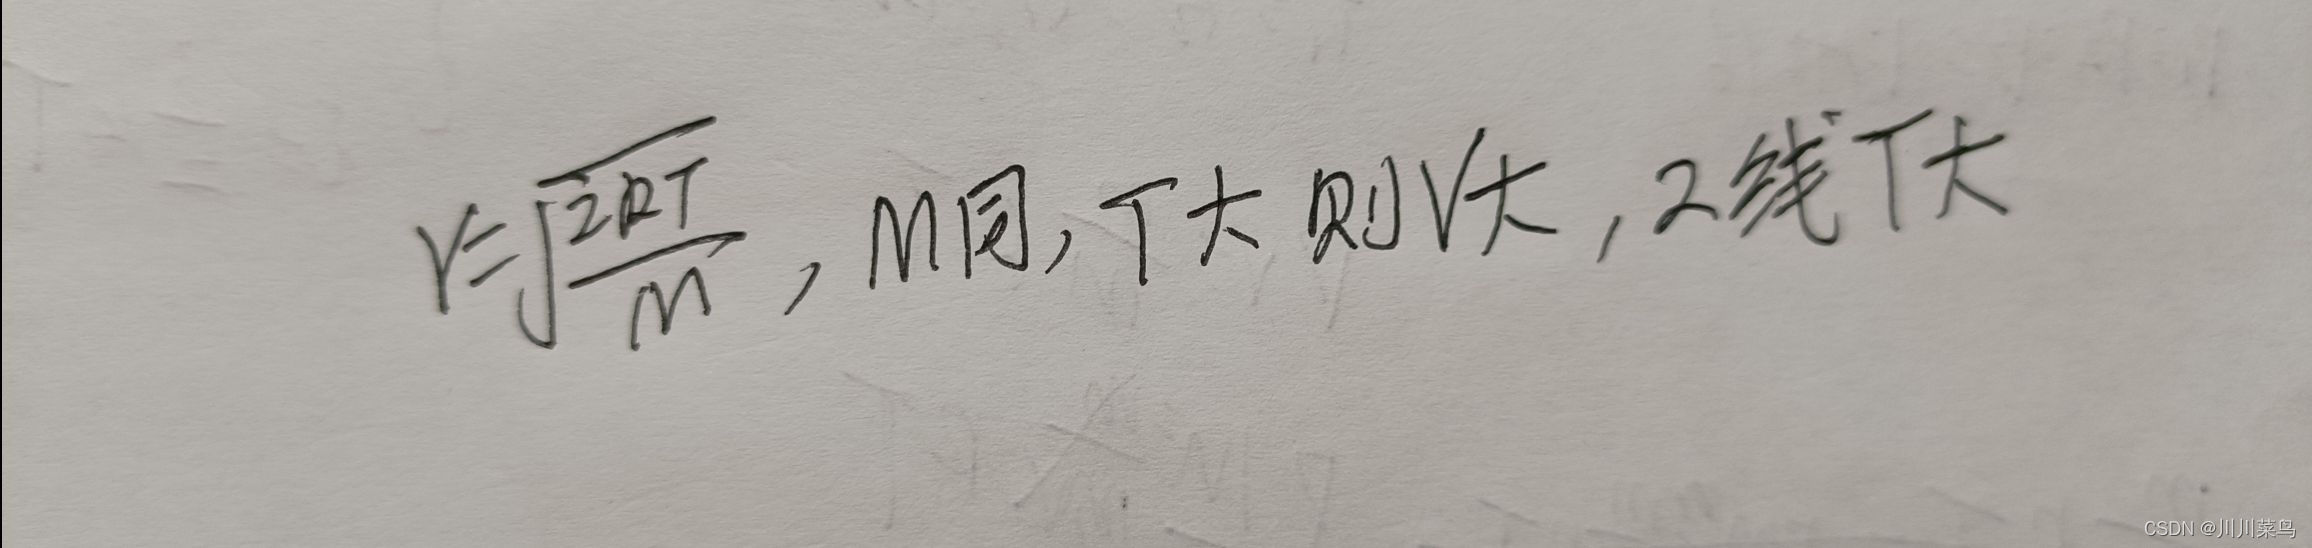 V=√(2RT/M), M同, T大则V大, 2线T大
CSDN @川川菜鸟